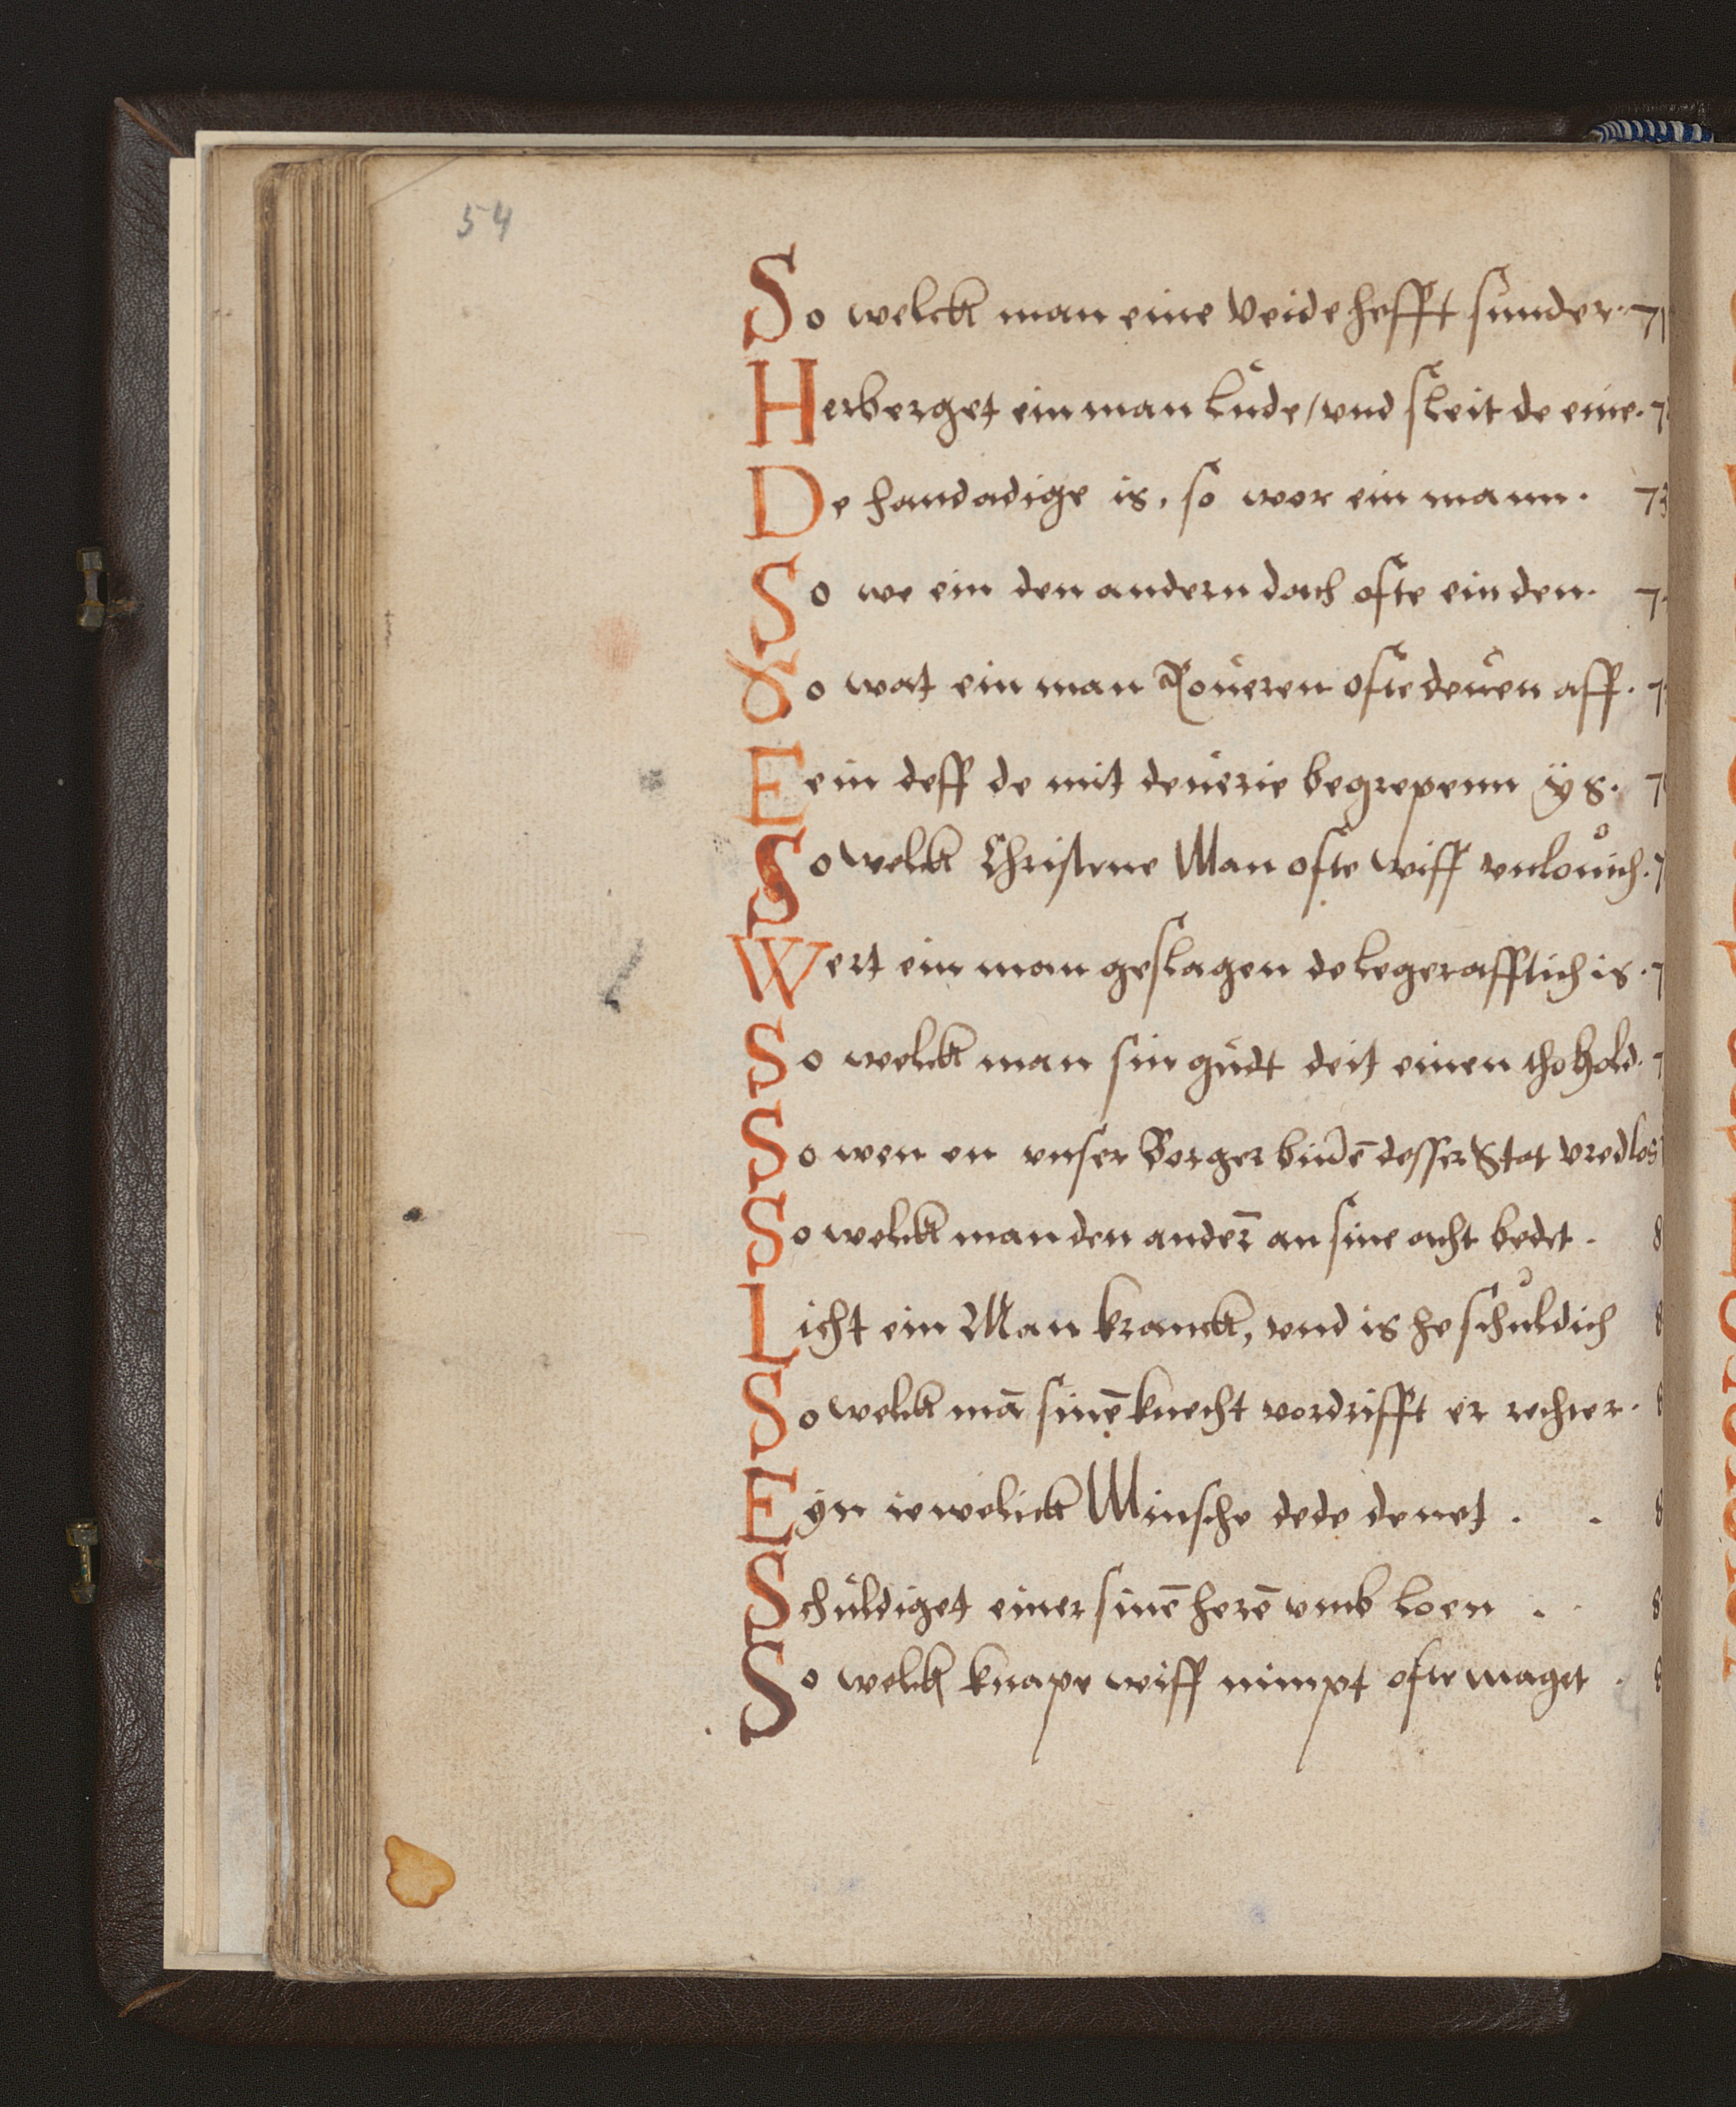 54
So welckk man eine Veide hefft sunder. 71
Herberget ein man lude / vnd sleit de eine. 7
De handadige is. so wor ein mann. 73
So we ein den andern doch ofte ein den. 7
So wat ein man Roueren ofte deuen aff. 7
Eein deff de mit deuerie begrepenn ÿs. 7
So welck Christene Man ofte wiff vnlouich. 7
Wert ein man geslagen de legerafftich is. 7
So welckk man sin gudt deit einen tho hold. 7
So wen en vnser Borger bind̄e desser Stat vredlos
So welckk man den ander̄ an sine acht bedet. 8
Licht ein Man kranckk, vnd is he schuldich 8
So welck mā sinē knecht vordrifft er rechter. 8
Eyn iewelickk Minsche dede denet . . 8
Schuldiget einer sinē herē vmb loen . . 8
So welck knape wiff nimpt ofte maget . 8